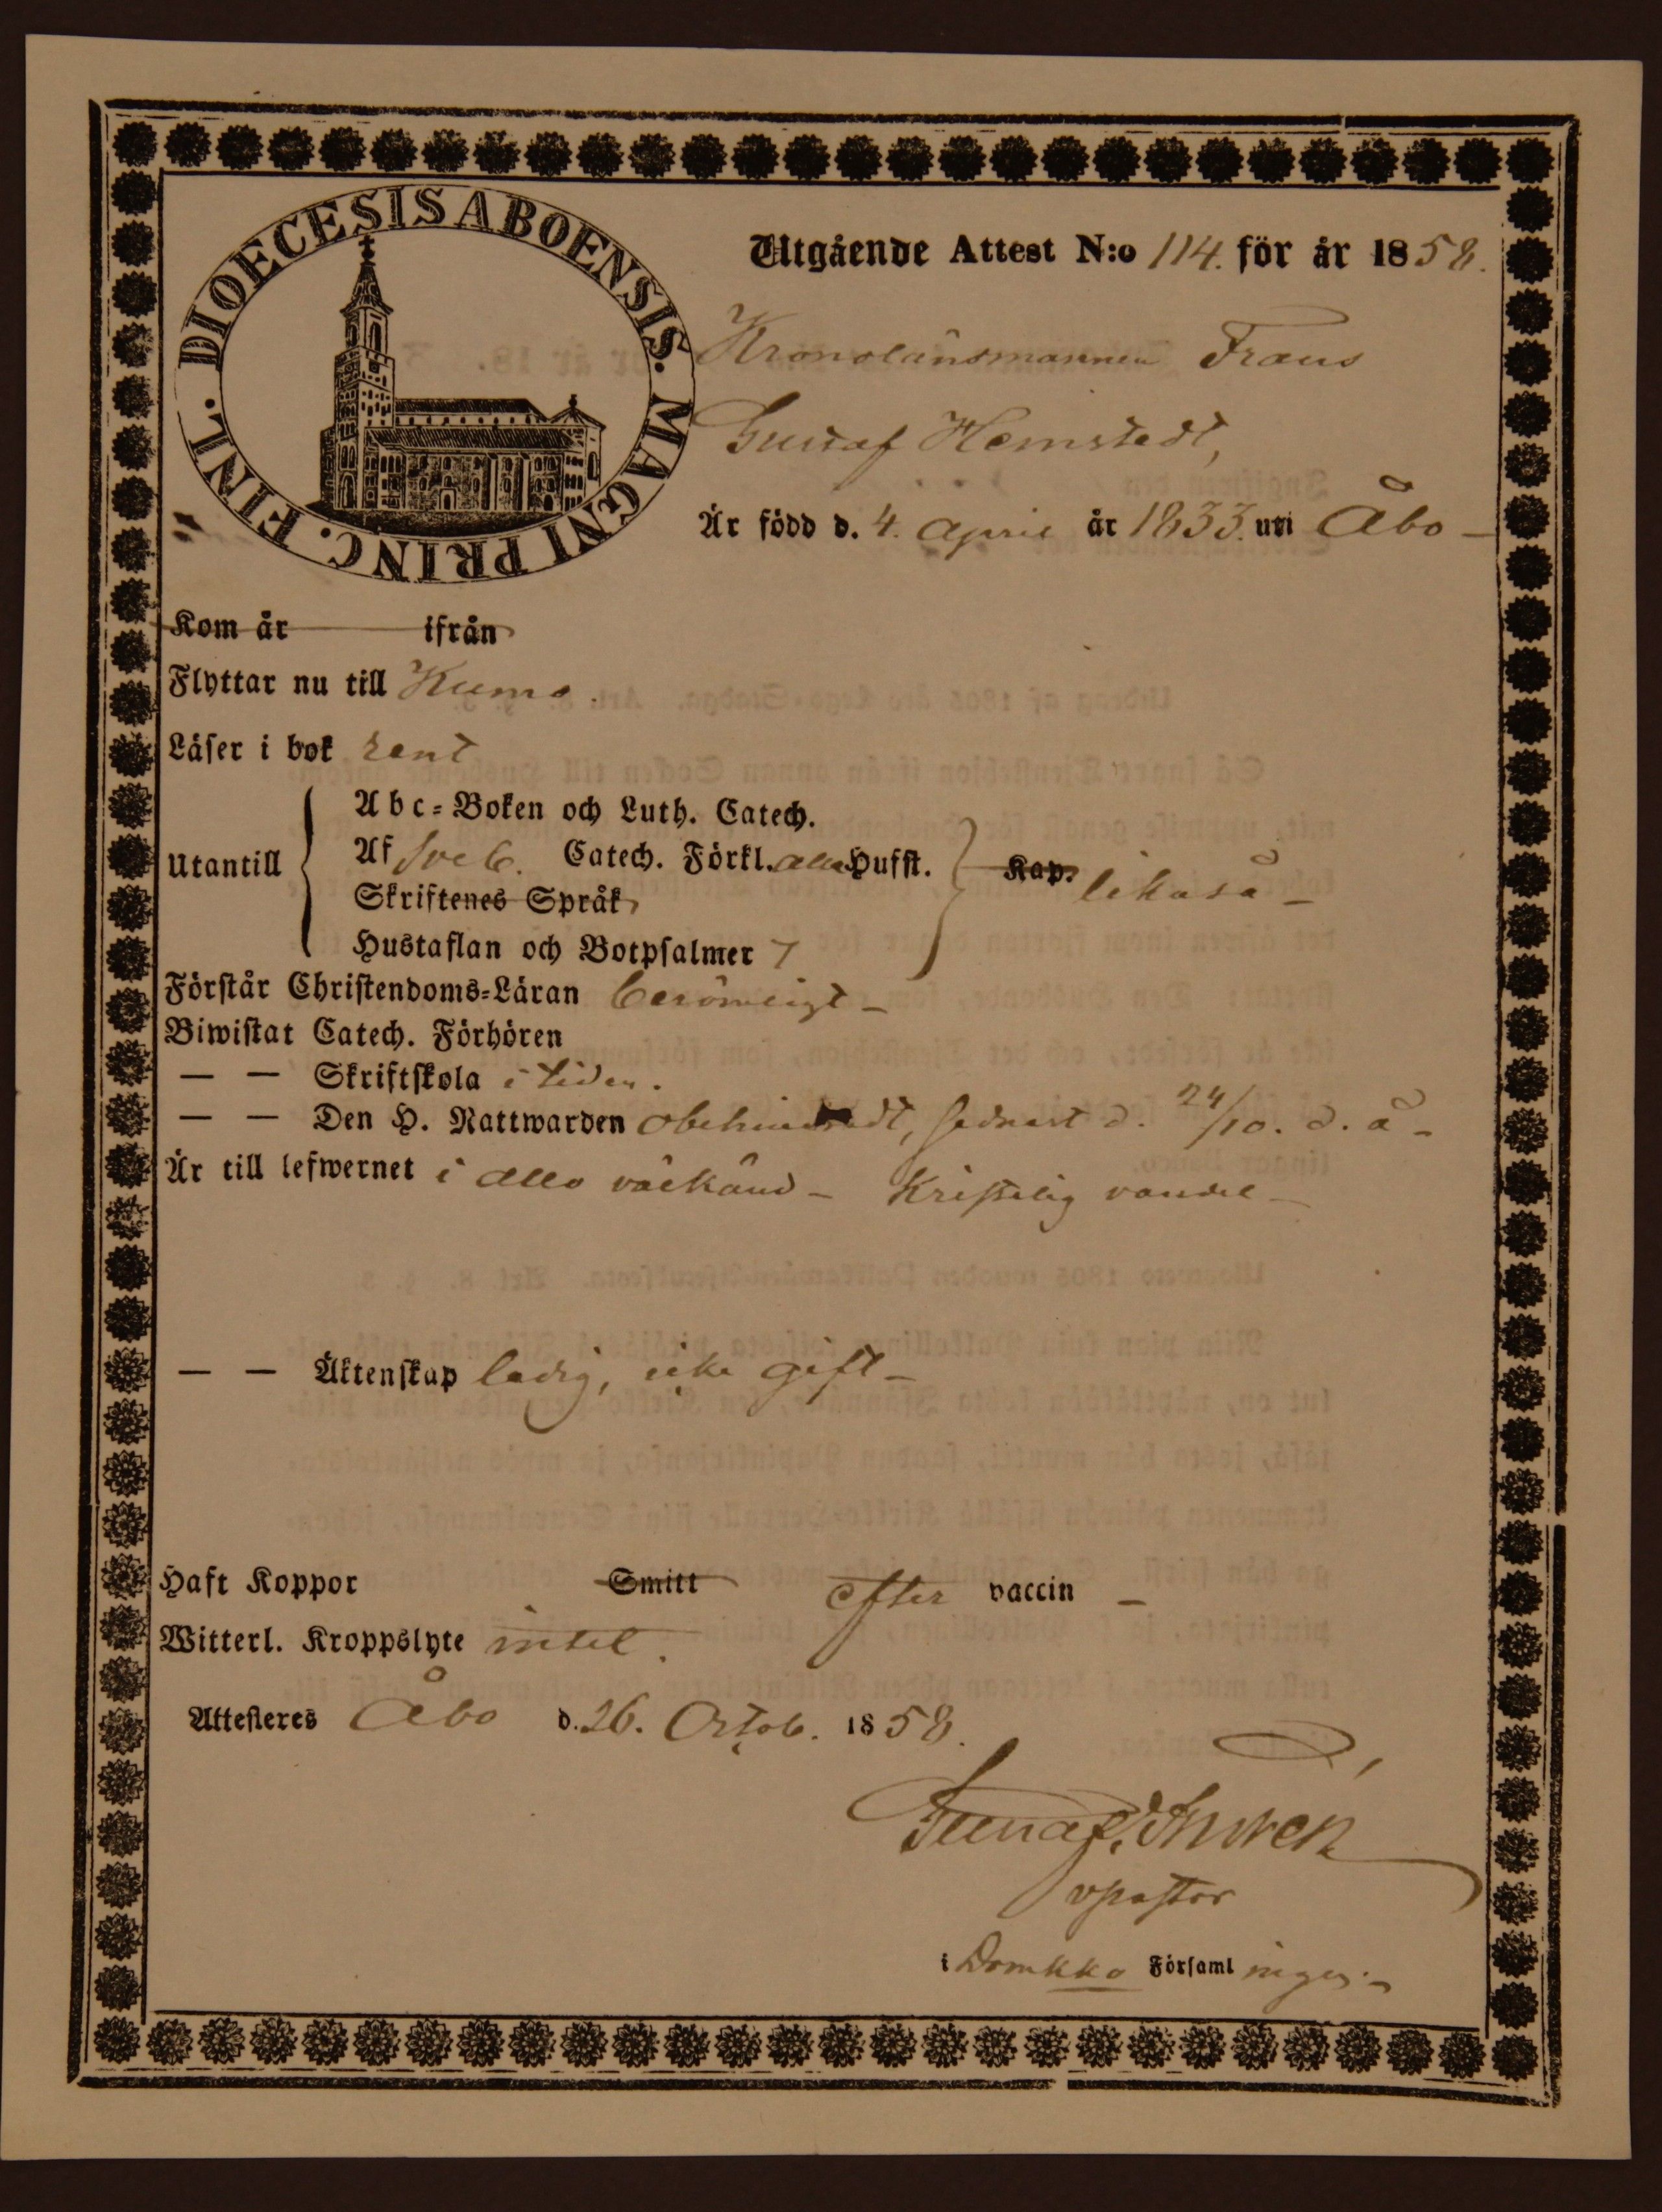 DIOECESIS ABOENSIS. MAGNI PRINC. FINL.
Utgående Attest N:o 114. för år 1858.
Kronolänsmannen Frans
Gustaf Hemstedt,
Är född d. 4. April år 1833. uti Åbo –
Kom år ifrån
Flyttar nu till Kumo.
Läser i bok rent
Utantill
Abc-Boken och Luth. Catech.
Af Sveb. Catech. Förkl. alla Hufst.
Skriftenes Språk
Hustaflan och Botpsalmer 7
Kap. likaså –
Förstår Christendoms-Läran berömligt –
Biwistat Catech. Förhören
— — Skriftskola i tiden.
— — Den H. Nattwarden obehindradt, sednast d. 24/10. d. å –
Är till lefwernet i allo välkänd – Kristelig vandel –
— — Äktenskap ledig, icke gift –
Haft Koppor Smitt efter vaccin –
Witterl. Kroppslyte intet.
Attesteres Åbo d. 26. Octob. 1858.
Gustaf
vpastor
i Domkko Församlingen –